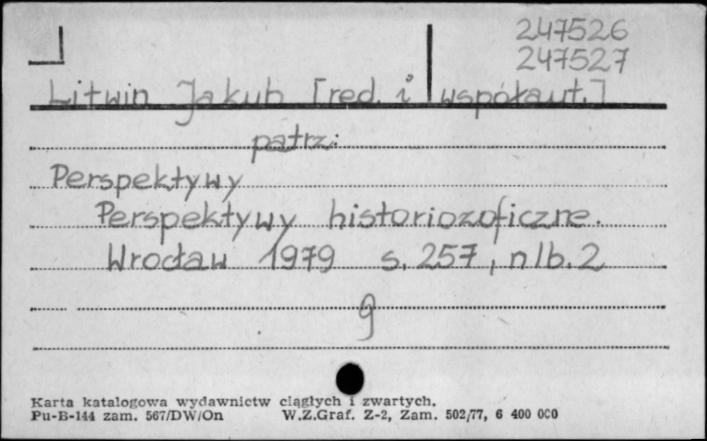 247526
247527
Litwin Jakub [red. i współaut.]
patrz:
Perspektywy
Perspektywy historiozoficzne.
Wrocław 1979 s. 257, nlb. 2
g
Karta katalogowa wydawnictw ciągłych i zwartych.
Pu-B-144 zam. 567/DW/On W.Z.Graf. Z-2, Zam. 502/77, 6 400 000